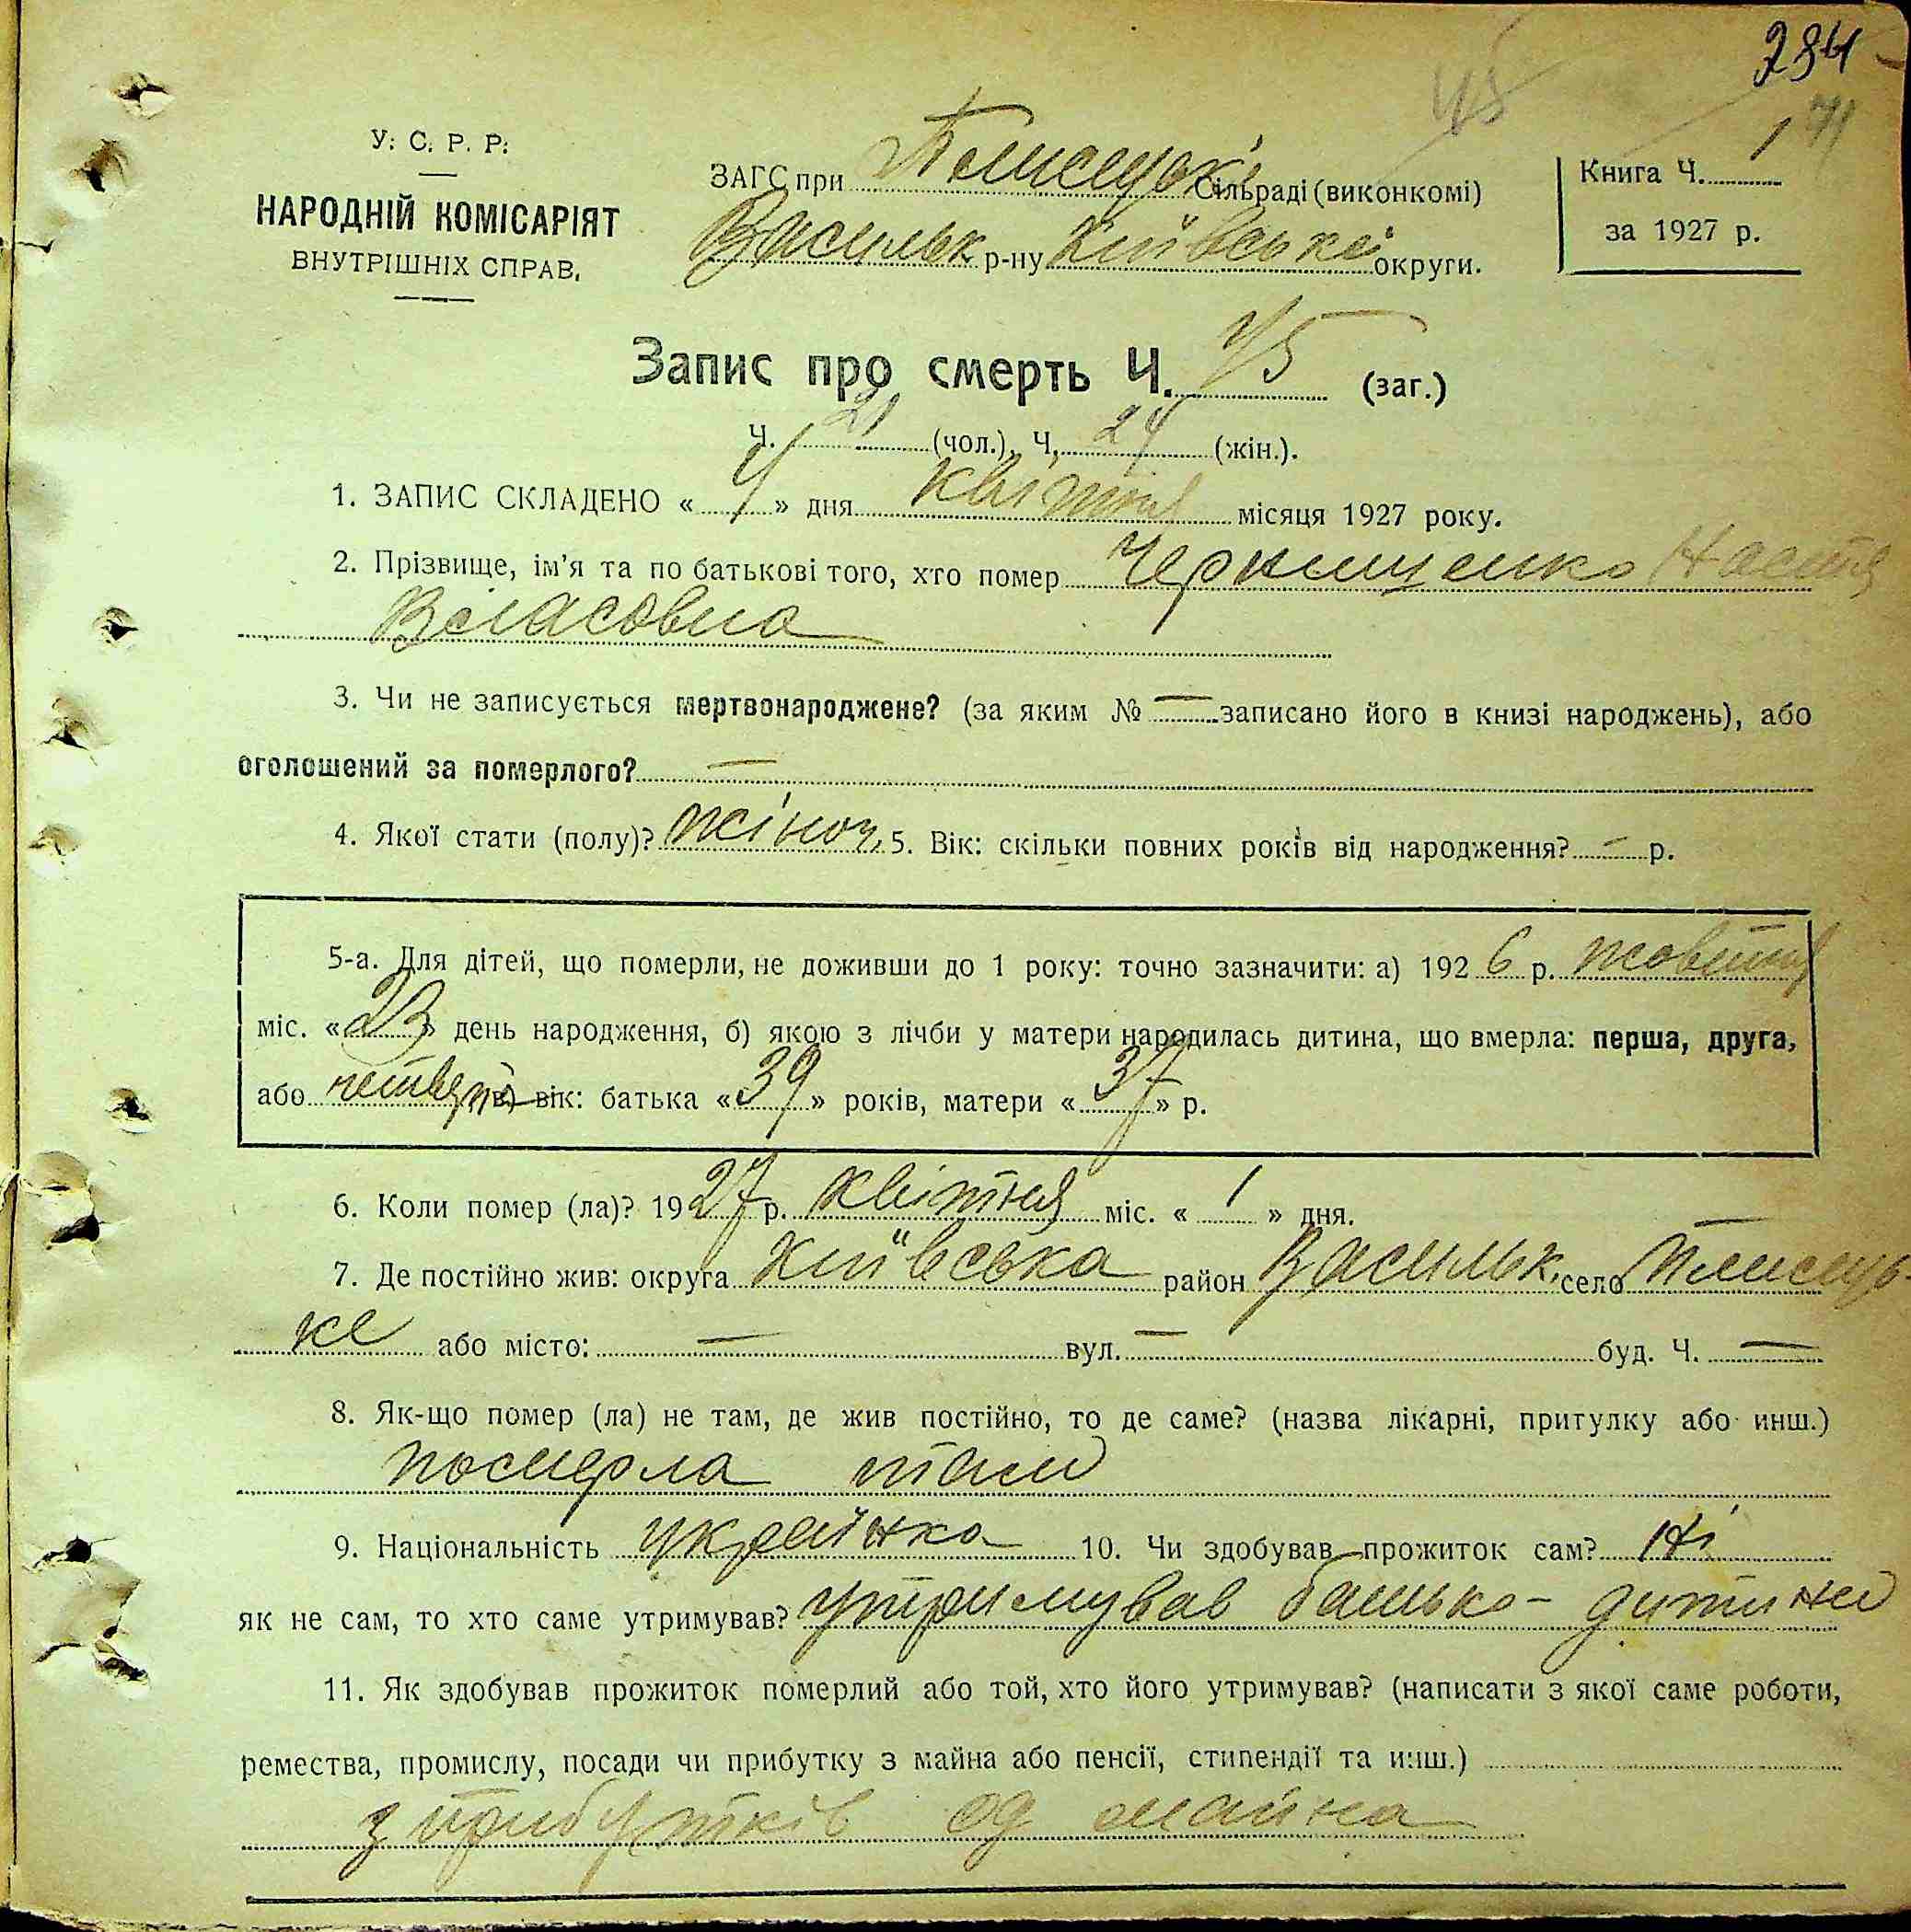 284
45
71
У. С. Р. Р.
НАРОДНІЙ КОМІСАРІЯТ
ВНУТРІШНІХ СПРАВ.
ЗАГС при Плисецьк. Сільраді (виконкомі)
Васильк. р-ну Київської округи.
Книга Ч. 1
за 1927 р.
Запис про смерть Ч. 45 (заг.)
Ч. 21 (чол.), Ч. 24 (жін.).
1. ЗАПИС СКЛАДЕНО « 4 » дня квітня місяця 1927 року.
2. Прізвище, ім'я та по батькові того, хто помер Чернишенко Настя
Власовна
3. Чи не записується мертвонароджене? (за яким № — записано його в книзі народжень), або
оголошений за померлого? —
4. Якої стати (полу)? жіноч. 5. Вік: скільки повних років від народження? — р.
5-а. Для дітей, що померли, не доживши до 1 року: точно зазначити: а) 1926 р. жовтня
міс. «23» день народження, б) якою з лічби у матери народилась дитина, що вмерла: перша, друга,
або четверта в) вік: батька «39» років, матери «37» р.
6. Коли помер (ла)? 1927 р. квітня міс. « 1 » дня.
7. Де постійно жив: округа Київська район Васильк. село Плисець-
ке або місто: — вул. — буд. Ч. —
8. Як-що помер (ла) не там, де жив постійно, то де саме? (назва лікарні, притулку або инш.)
померла там
9. Національність українка 10. Чи здобував прожиток сам? Ні
як не сам, то хто саме утримував? утримував батько - дитина
11. Як здобував прожиток померлий або той, хто його утримував? (написати з якої саме роботи,
ремества, промислу, посади чи прибутку з майна або пенсії, стипендії та инш.)
з прибутків од майна